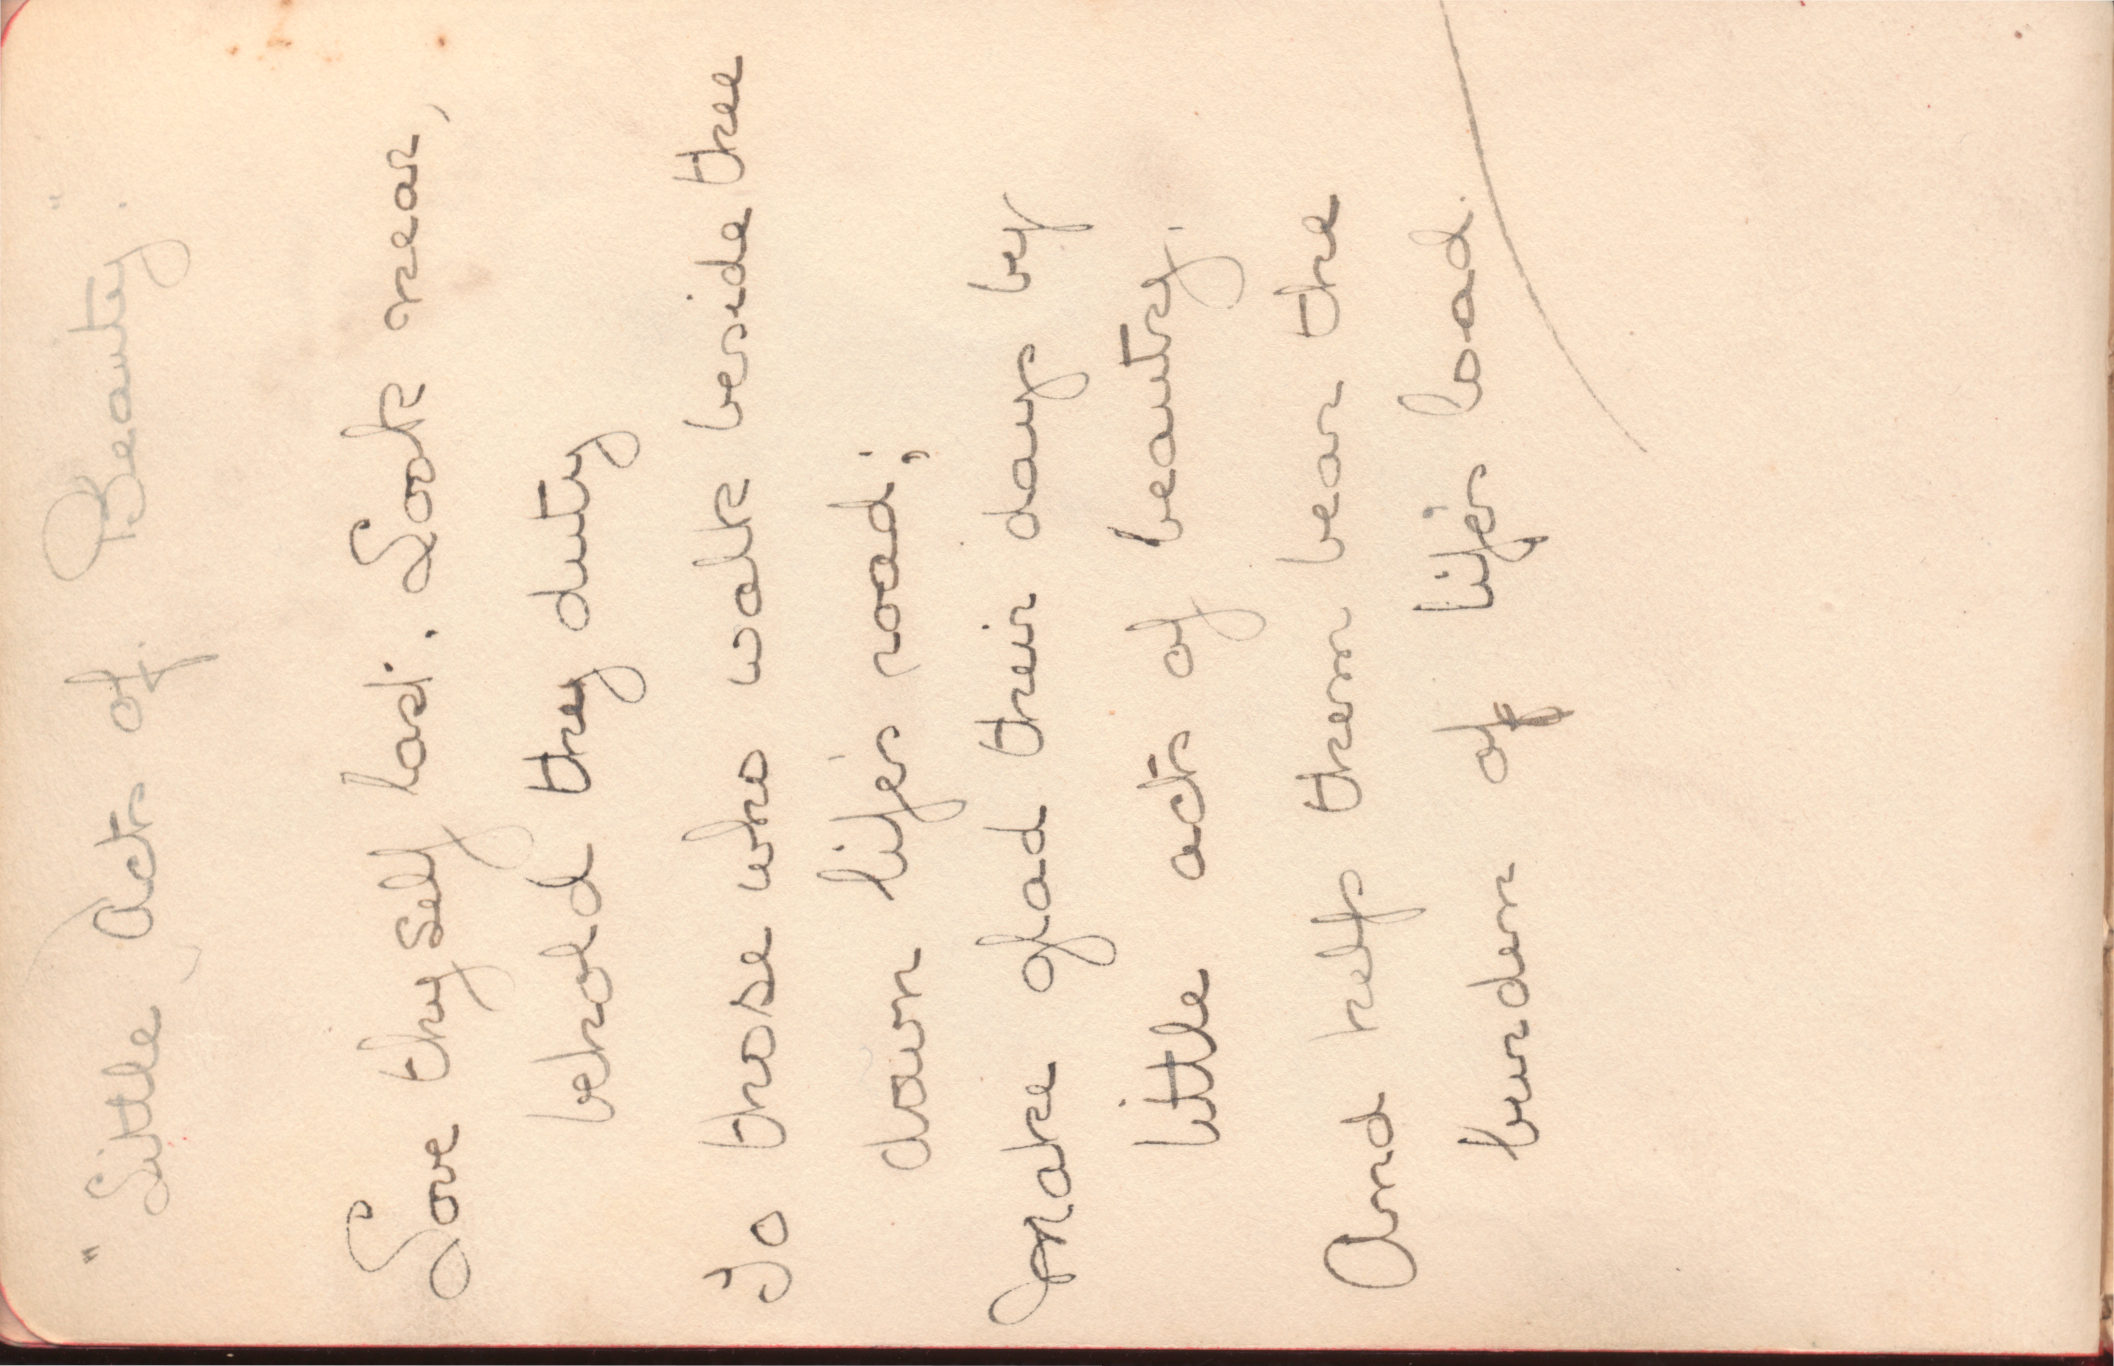 "Little Acts of Beauty."
Love thyself last. Look near,
behold thy duty
To those who walk beside thee
down life's road;
Make glad their days by
little acts of beauty.
And help them bear the
burden of life's load.